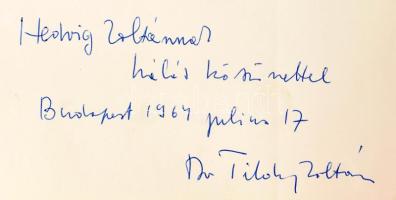 Hedvig Zoltánnak
hálás köszönettel
Budapest 1964 julius 17
Dr Tildy Zoltán